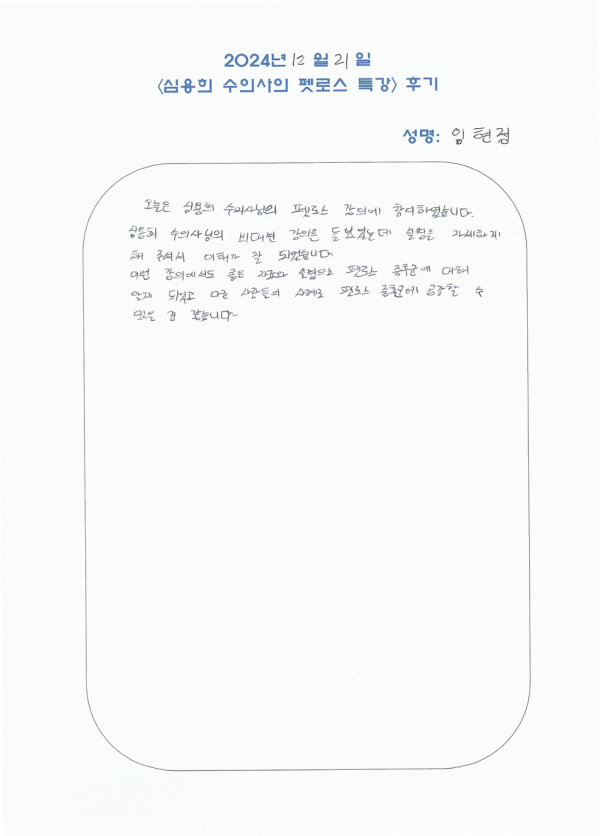 2024년 12 월 21 일
<심용희 수의사의 펫로스 특강> 후기
성명: 임현정
오늘은 심용희 수의사님의 펫로스 강의에 참여하였습니다.
심용희 수의사님의 비대면 강의를 들었었는데 설명을 자세하게
해 주셔서 이해가 잘 되었습니다.
이번 강의에서도 좋은 자료와 설명으로 펫로스 증후군에 대해
알게 되었고 다른 사람들의 사례로 펫로스 증후군에 공감할 수
있을 것 같습니다.